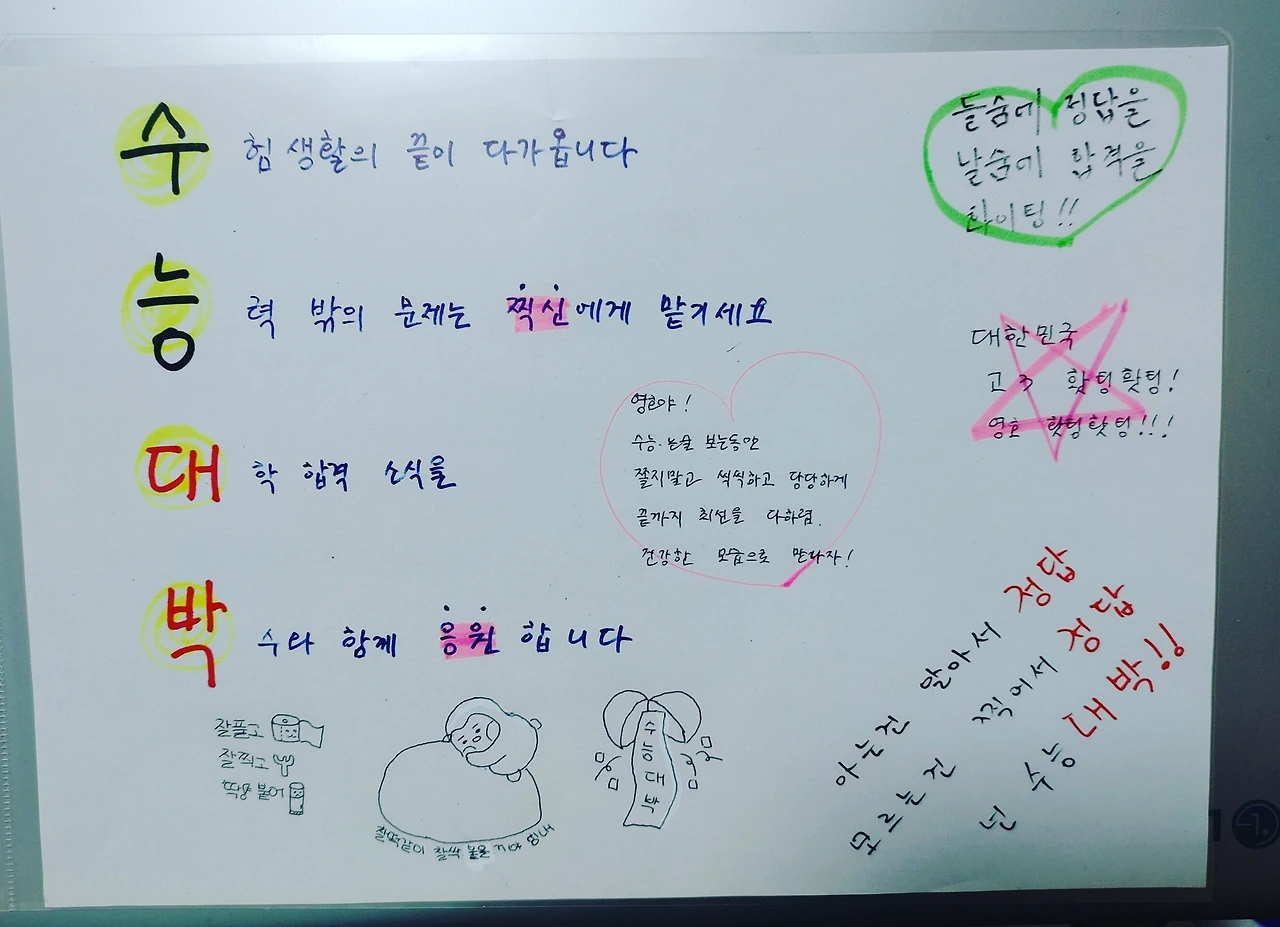 수험생활의 끝이 다가옵니다
능력 밖의 문제는 찍신에게 맡기세요
대학 합격 소식을
박수와 함께 응원 합니다
들숨에 정답을
날숨에 합격을
화이팅!!
대한민국
고3 홧팅홧팅!
영호 홧팅홧팅!!!
영호야!
수능·논술 보는동안
쫄지말고 씩씩하고 당당하게
끝까지 최선을 다하렴.
건강한 모습으로 만나자!
잘풀고
잘찍고
딱 붙어
찰떡같이 찰싹 붙을 거야 힘내
수능대박
아는건 알아서 정답
모르는건 찍어서 정답
넌 수능 대박!!